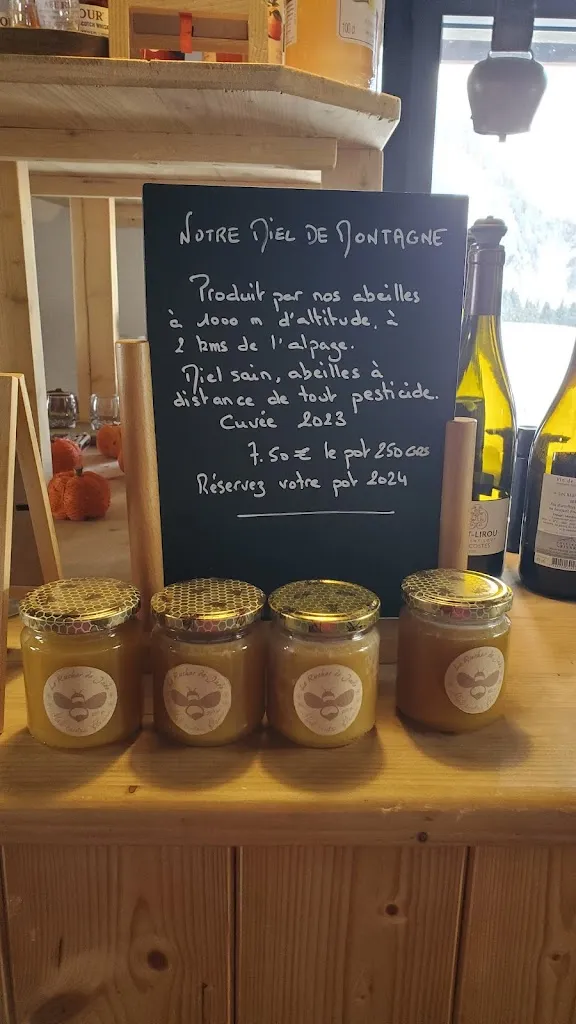 NOTRE MIEL DE MONTAGNE
Produit par nos abeilles
à 1000 m d'altitude, à
2 kms de l'alpage.
Miel sain, abeilles à
distance de tout pesticide.
Cuvée 2023
7.50 € le pot 250 GRS
Réservez votre pot 2024
T-LIROU